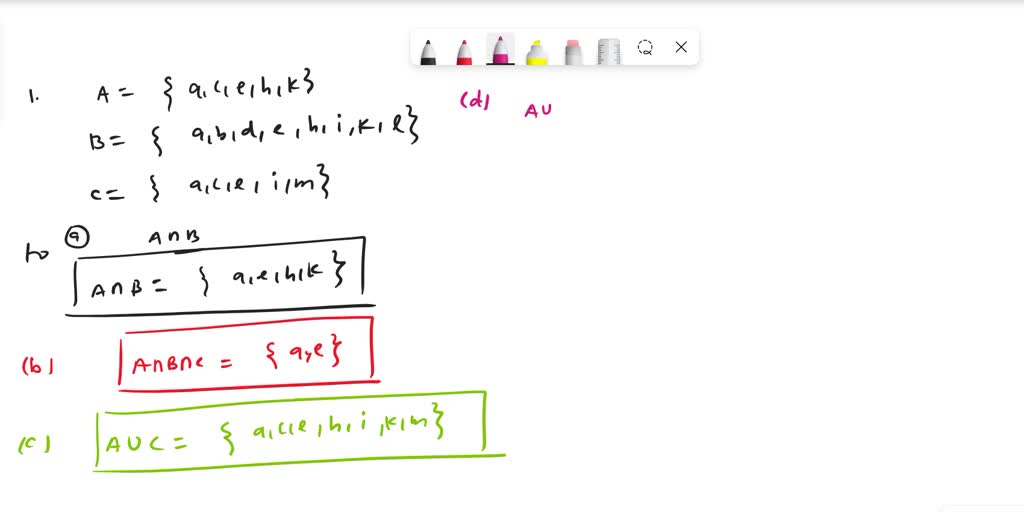 1. A = { a, c, e, h, k }
B = { a, b, d, e, h, i, k, l }
C = { a, c, e, i, m }
(a) A ∩ B
A ∩ B = { a, e, h, k }
(b) A ∩ B ∩ C = { a, e }
(c) A ∪ C = { a, c, e, h, i, k, m }
(d) A ∪